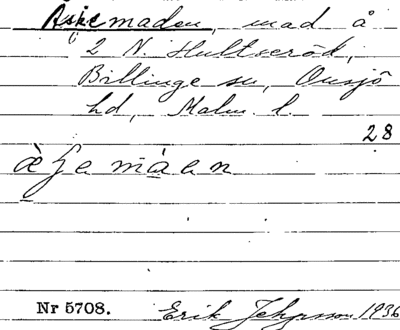 Askemaden, mad å
2 N. Hultseröd,
Billinge sn, Onsjö
hd, Malm. l.
28
Nr 5708. Erik 1936